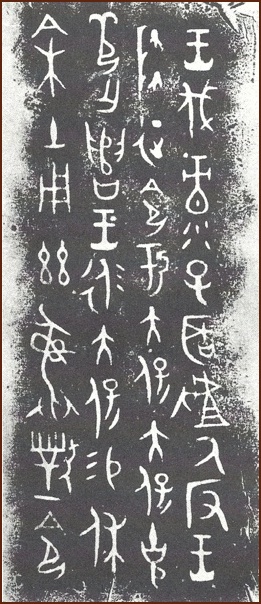 王伐彔子𦔻𠭯氒反王
降征令于大保大保克
茍亡𠳋王永大保易休
余土用茲彝對令